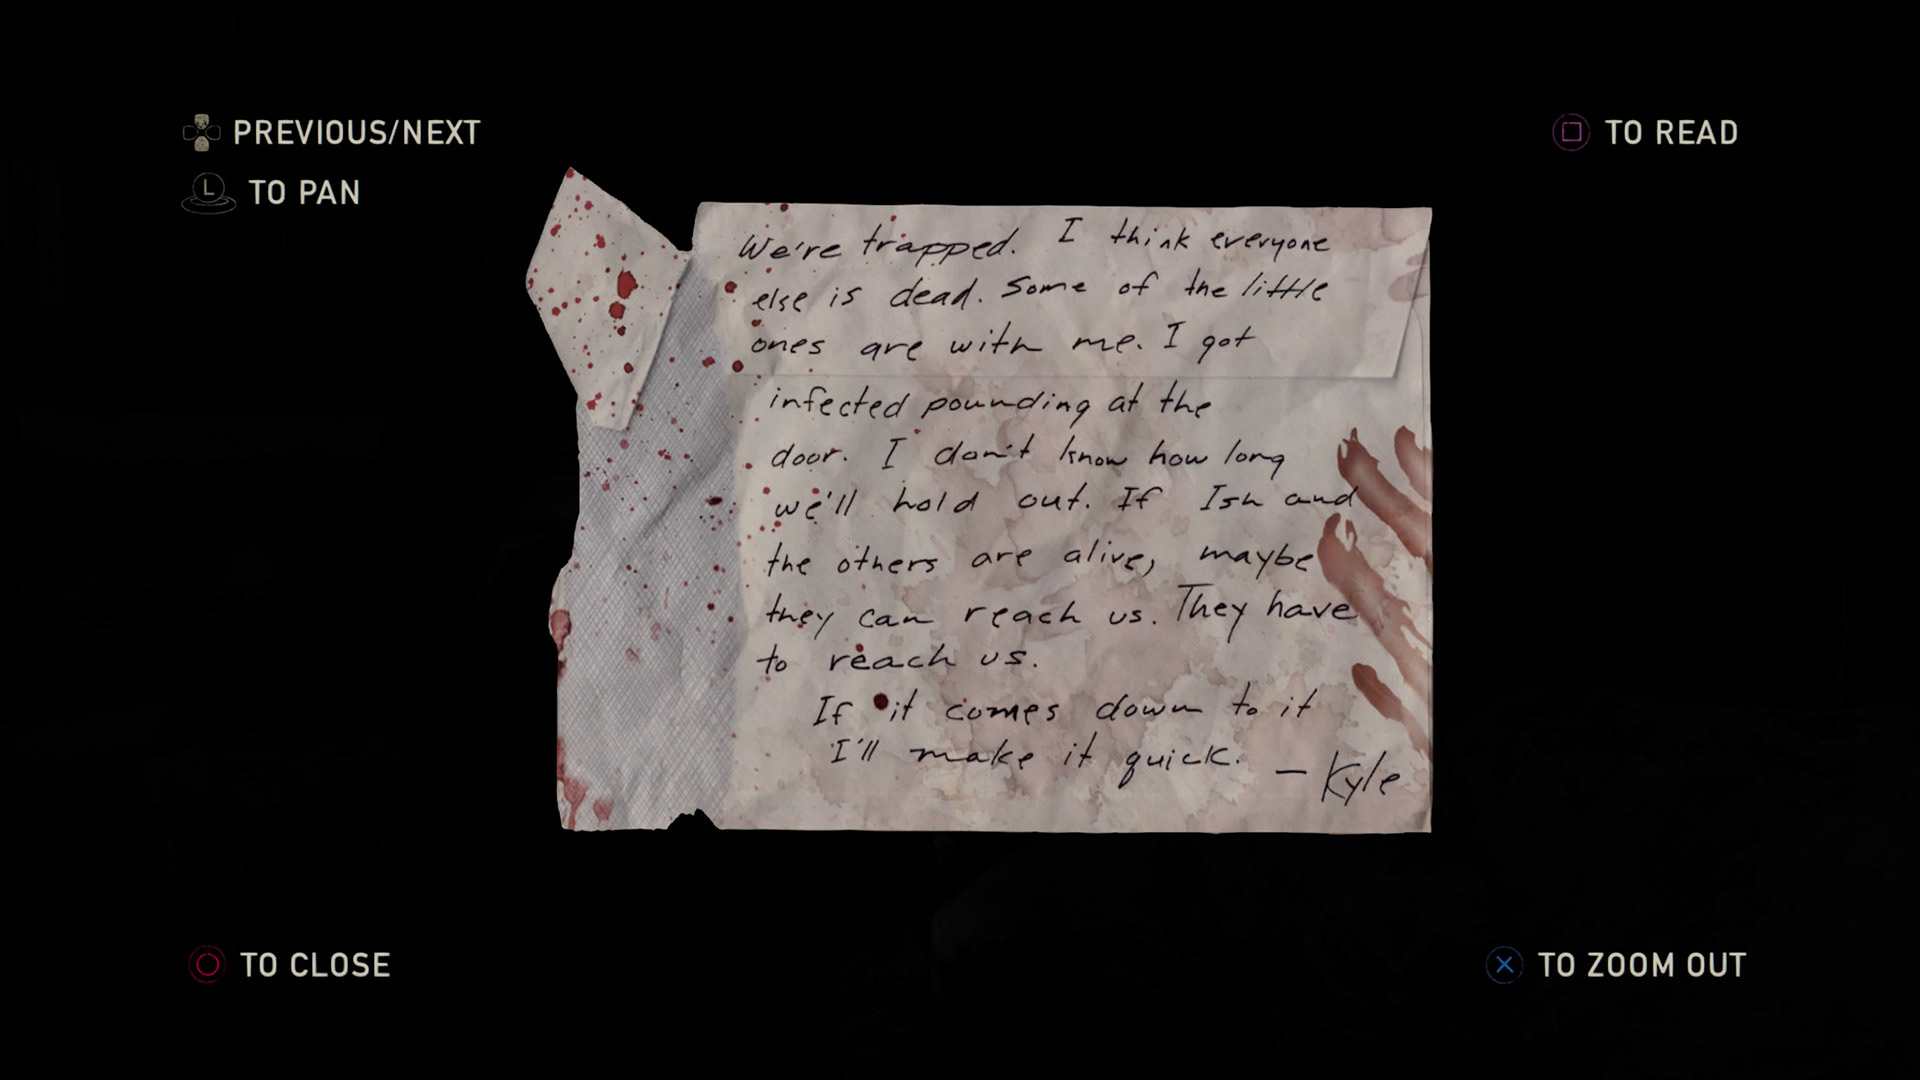 PREVIOUS/NEXT
L TO PAN
TO READ
We're trapped. I think everyone
else is dead. Some of the little
ones are with me. I got
infected pounding at the
door. I don't know how long
we'll hold out. If Ish and
the others are alive, maybe
they can reach us. They have
to reach us.
If it comes down to it
I'll make it quick. – Kyle
TO CLOSE
TO ZOOM OUT